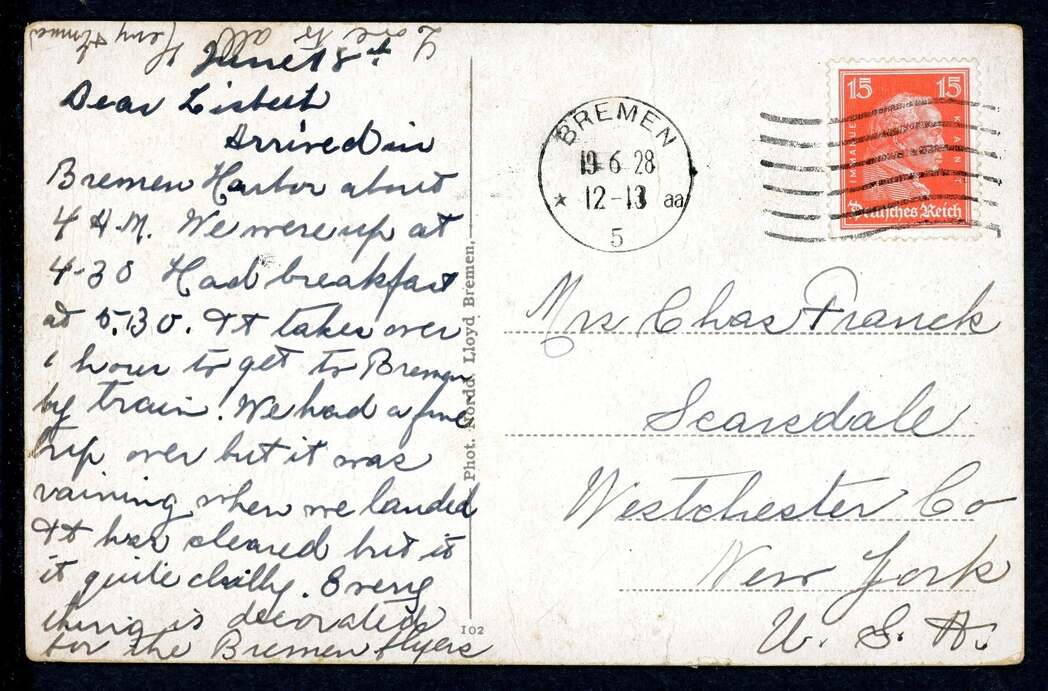 June 18th
Dear Lisbeth
Arrived in
Bremen Harbor about
4 A.M. We were up at
4-30 Had breakfast
at 5.30. It takes over
1 hour to get to Bremen
by train. We had a fine
trip over but it was
raining when we landed
It has cleared but it
it quite chilly. Every
thing is decorated
for the Bremen flyers
Love to all
Phot. Nordd. Lloyd Bremen.
102
BREMEN
19-6 28
12-13 aa
* 5
15 15
IMMANUEL KANT
Deutsches Reich
Mrs Chas Franck
Scarsdale
Westchester Co
New York
U. S. A.